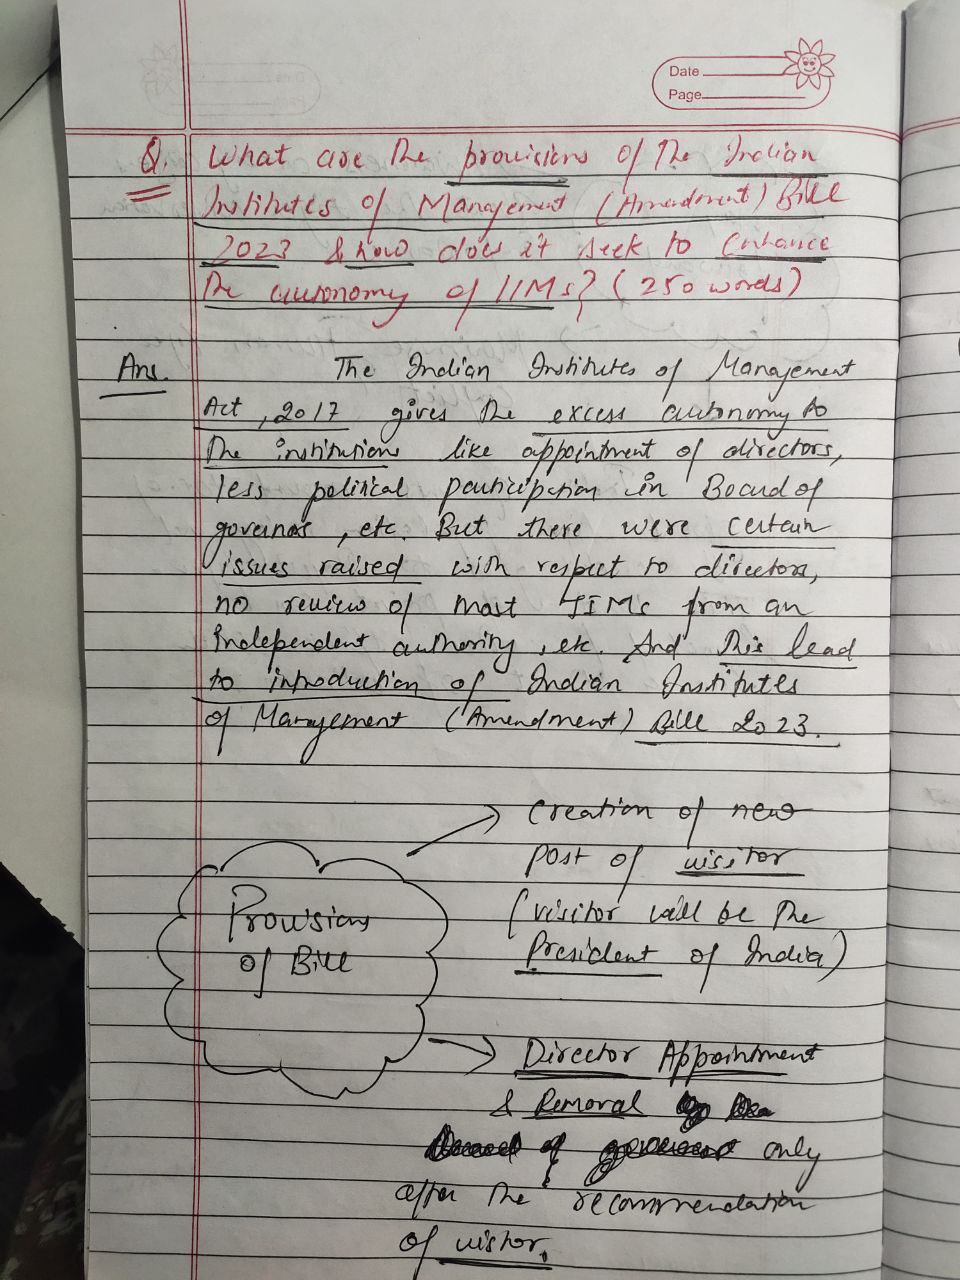 Date
Page
Q. What are the provisions of the Indian
Institutes of Management (Amendment) Bill
2023 & how does it seek to Enhance
the autonomy of IIMs? (250 words)
Ans. The Indian Institutes of Management
Act, 2017 gives the excess autonomy to
the institutions like appointment of directors,
less political participation in Board of
governors, etc. But there were certain
issues raised with respect to directors,
no review of most IIMs from an
Independent authority, etc. And this lead
to introduction of Indian Institutes
of Management (Amendment) Bill 2023.
Provisions
of Bill
Creation of new
post of visitor
(visitor will be the
President of India)
Director Appointment
& Removal
only
after the recommendation
of vistor.